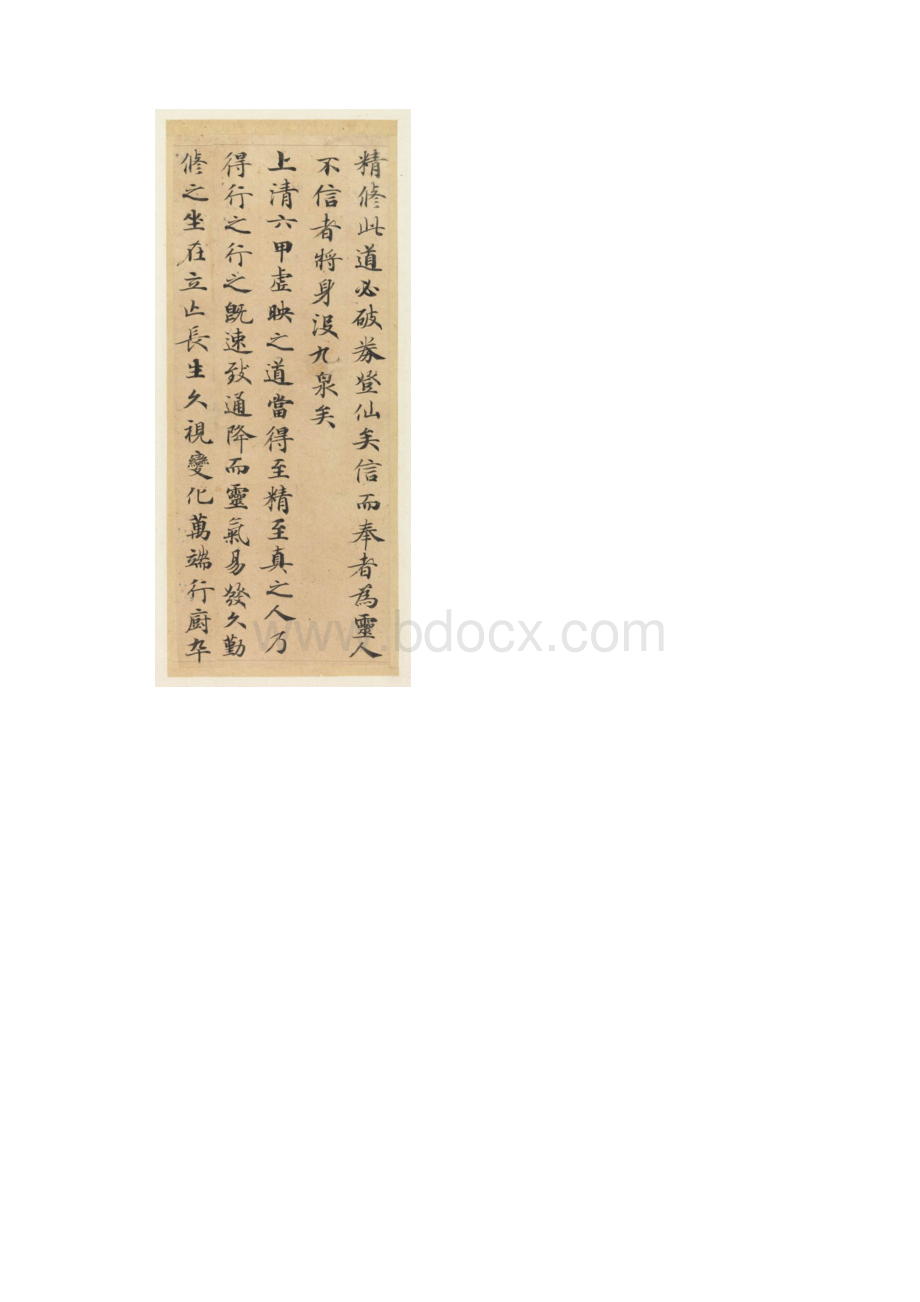 精修此道必破券登仙矣信而奉者為靈人
不信者將身沒九泉矣
上清六甲虛映之道當得至精至真之人乃
得行之行之既速致通降而靈氣易發久勤
修之坐在立亡長生久視變化萬端行廚卒
www.bdocx.com